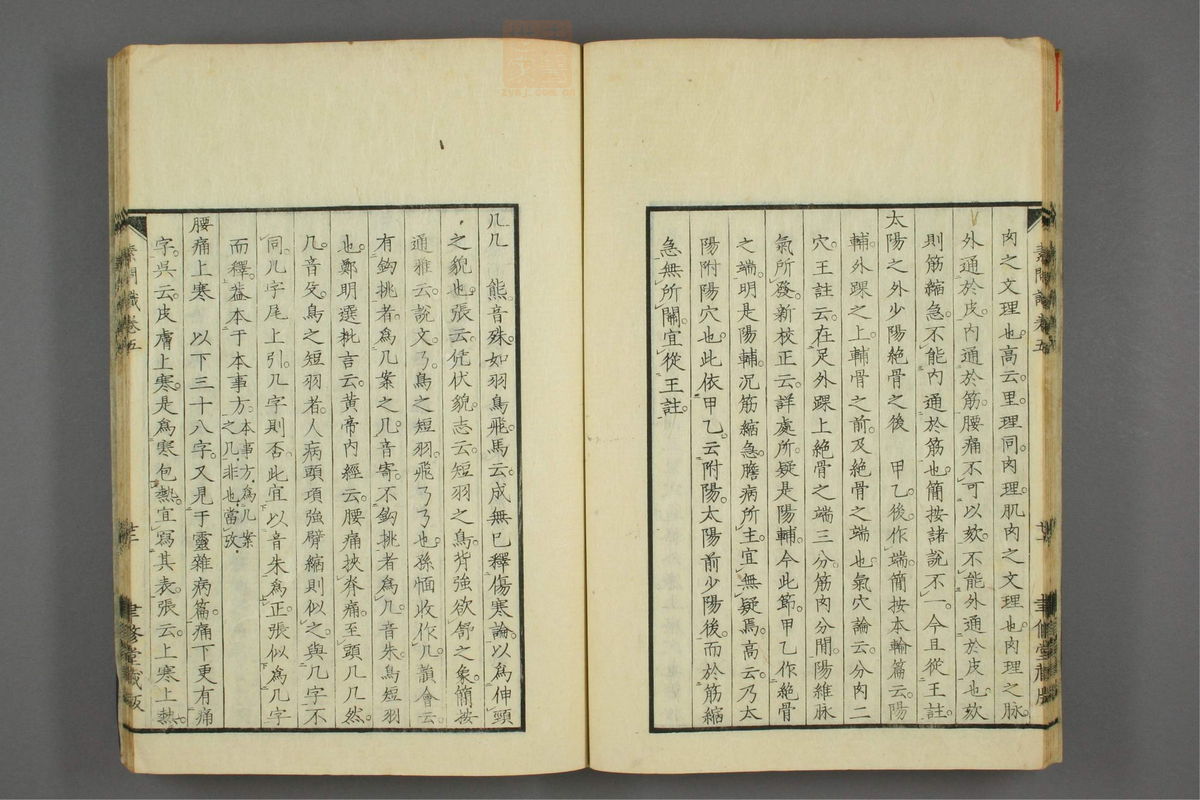 肉之文理也高云里理同肉理肌肉之文理也肉理之脉
外通於皮內通於筋腰痛不可以欬不能外通於皮也欬
則筋縮急不能內通於筋也簡按諸說不一今且從王註
太陽之外少陽絕骨之後　甲乙後作端簡按本輪篇云陽
輔外踝之上輔骨之前及絕骨之端也氣穴論云分肉二
穴王註云在足外踝上絕骨之端三分筋肉分間陽維脉
氣所發新校正云詳處所疑是陽輔今此節甲乙作絕骨
之端明是陽輔況筋縮急膽病所主宜無疑焉高云乃太
陽附陽穴也此依甲乙云附陽太陽前少陽後而於筋縮
急無所關宜從王註
几几　熊音殊如羽鳥飛馬云成無已釋傷寒論以為伸頸
之貌也張云凭伏貌志云短羽之鳥背強欲舒之象簡按
通雅云說文𠘧鳥之短羽飛𠘧𠘧也孫愐收作几韻會云
有鈎挑者為几案之几音寄不鈎挑者為几音朱鳥短羽
也鄭明選秕言云黃帝內經云腰痛挾脊痛至頭几几然
几音殳鳥之短羽者人病頭項強臂縮則似之與几字不
同几字尾上引几字則否此宜以音朱為正張似為几字
而釋葢本于本事方本事方為几案之几非也當改
腰痛上寒　以下三十八字又見于靈雜病篇痛下更有痛
字吳云皮膚上寒是為寒包熱宜寫其表張云上寒上熱
素問識卷五
聿修堂藏版